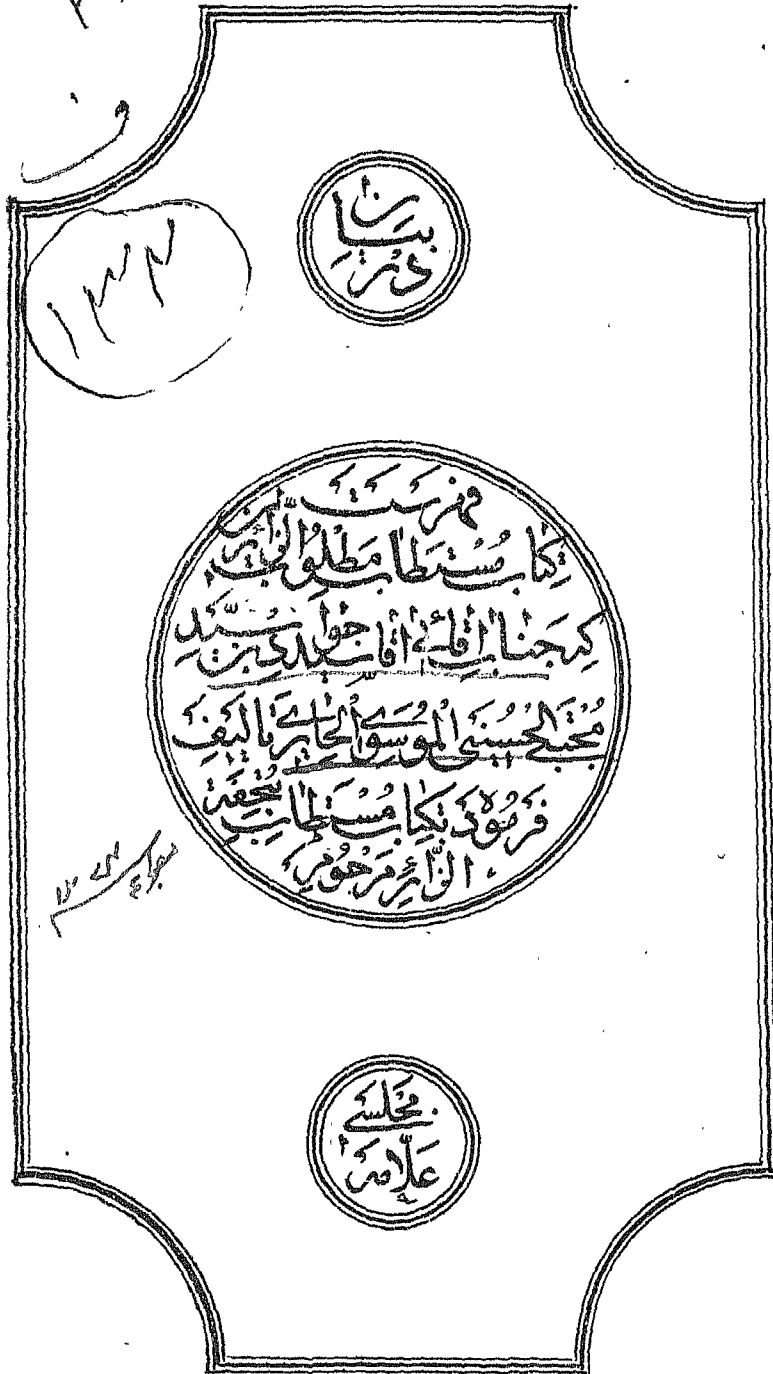 ۱۳۲
در بیان
فهرست این
کتاب مستطاب مطلوب الزائرین
که جناب آقائی آقا سید جواد بن سید
مجتبی الحسینی الموسوی الحائری تالیف
فرموده بکتاب مستطاب تحفة
الزائر مرحوم
علامه
مجلسی